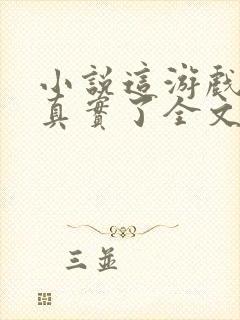 小說這游戲
真實了全文
三並